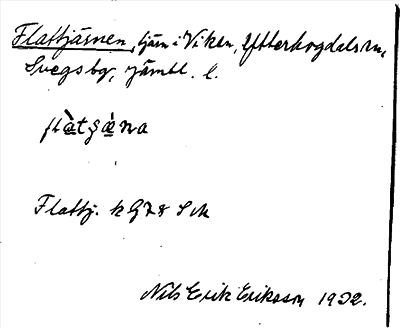 Flattjärnen, tjärn i Viken, Ytterhogdals sn,
Svegs bg, Jämtl. l.
Flattj. k G 78 S
Nils Erik Eriksson 1932.